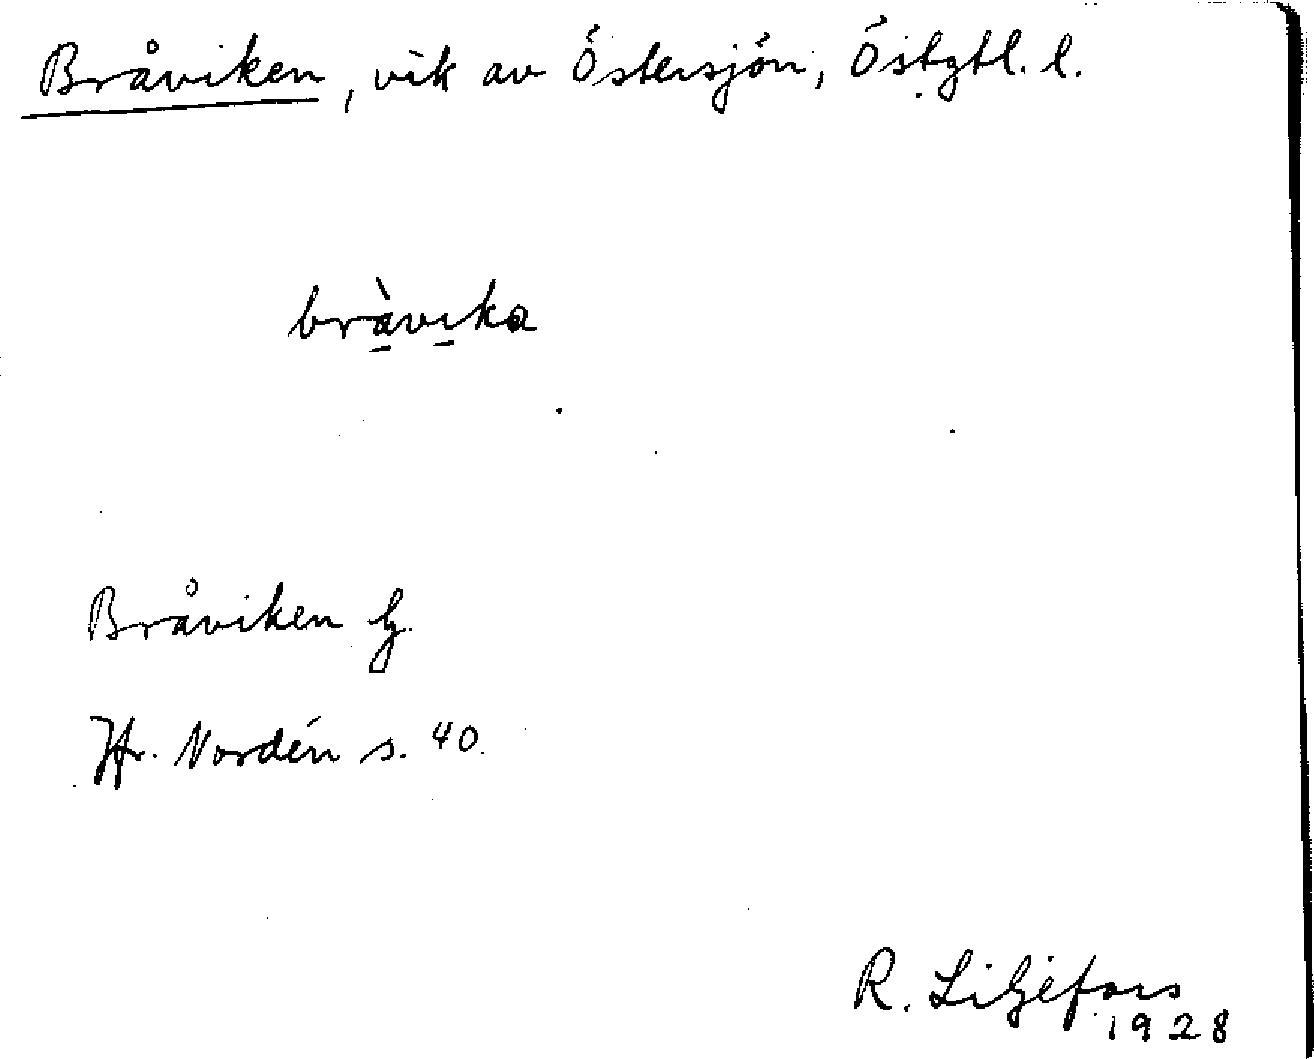 Bråviken, vik av Östersjön, Östgtl. l.
bràvika
Bråviken
Jfr. Nordén s. 40.
R. Liljefors
1928